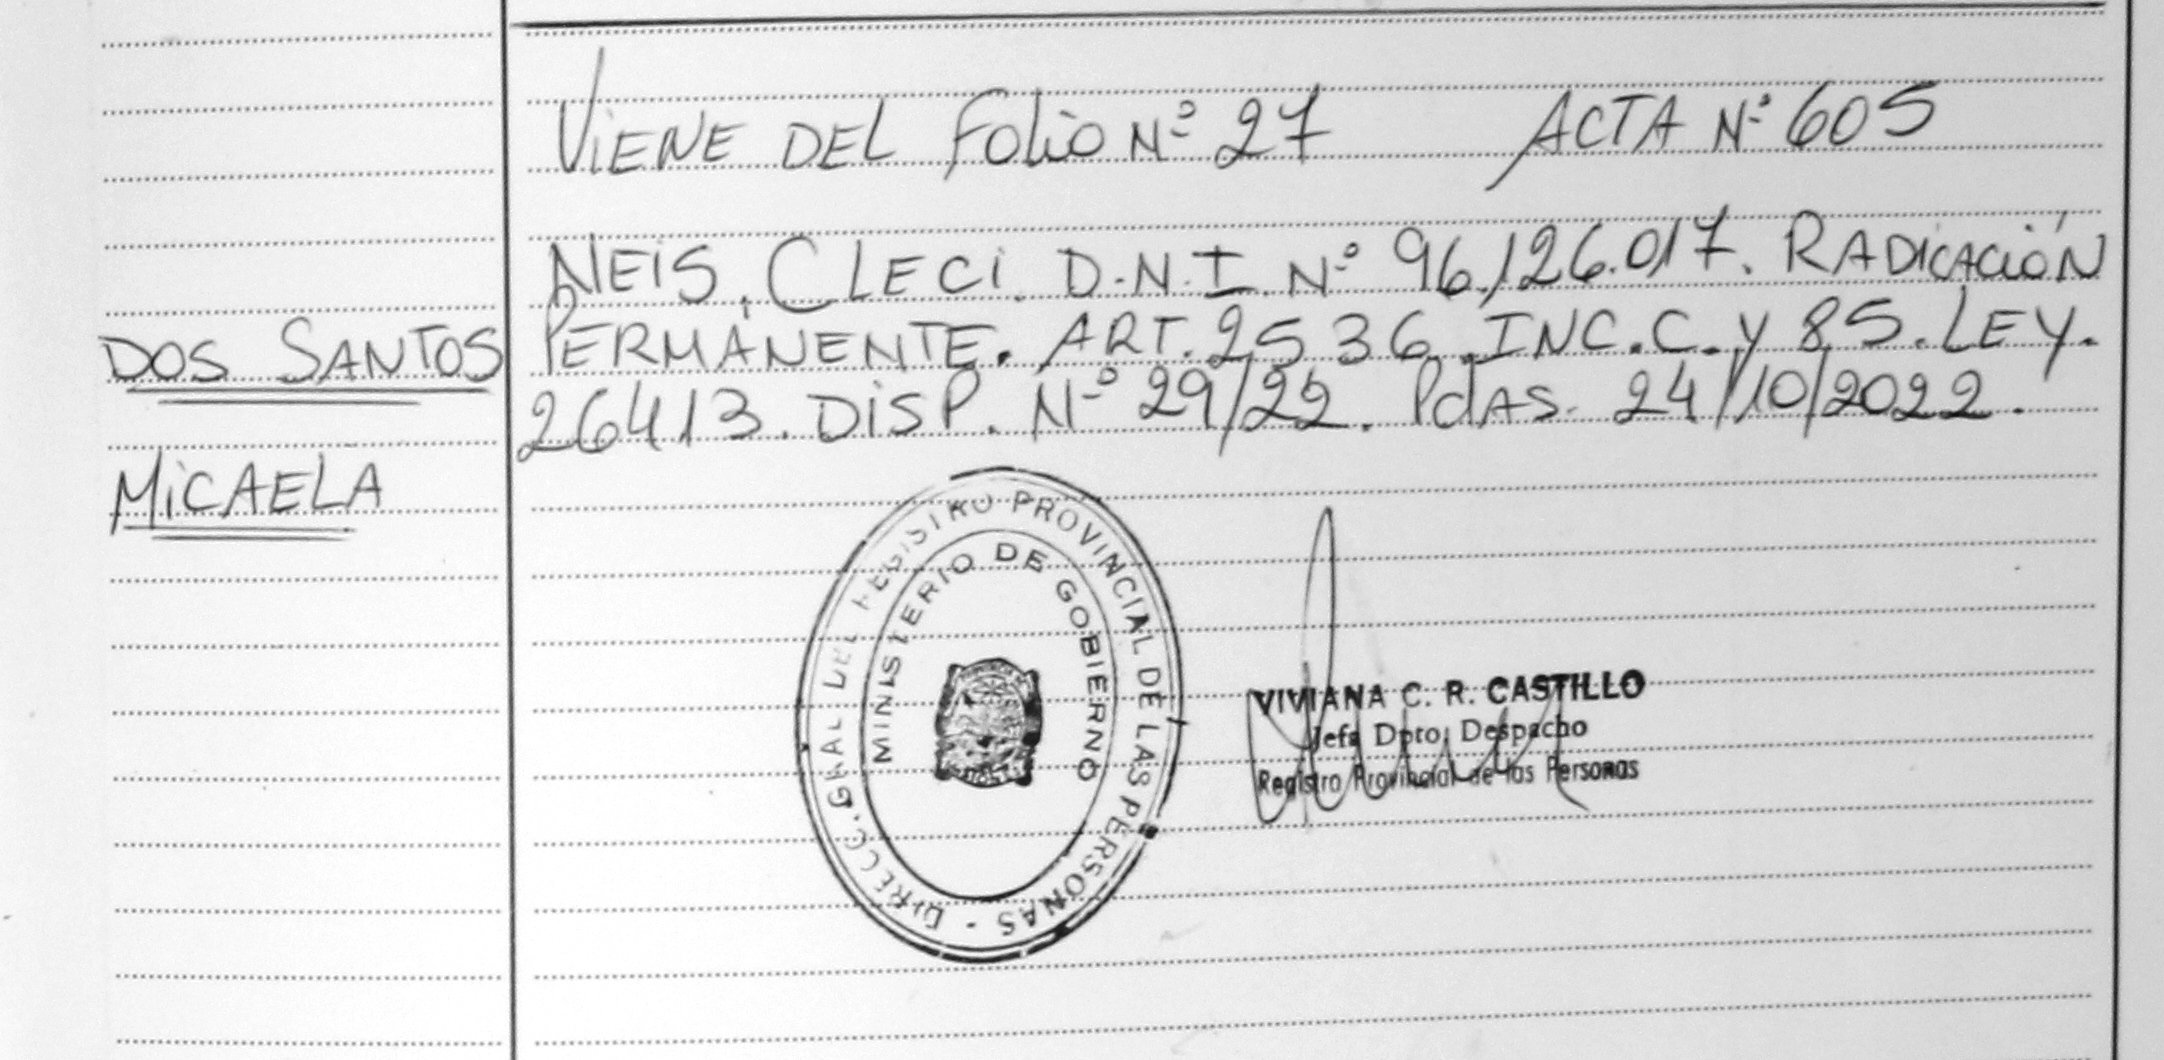 VIENE DEL Folio Nº 27 ACTA Nº 605
NEIS, CLECI. D.N.I. Nº 96.126.017. RADICACIÓN
DOS SANTOS
PERMANENTE. ART. 2536. INC. C. Y 85. LEY.
26413. DISP. Nº 29/22. PdAS. 24/10/2022.
MICAELA
DIRECC. GRAL DEL REGISTRO PROVINCIAL DE LAS PERSONAS -
MINISTERIO DE GOBIERNO
VIVIANA C. R. CASTILLO
Jefa Dpto. Despacho
Registro Provincial de las Personas